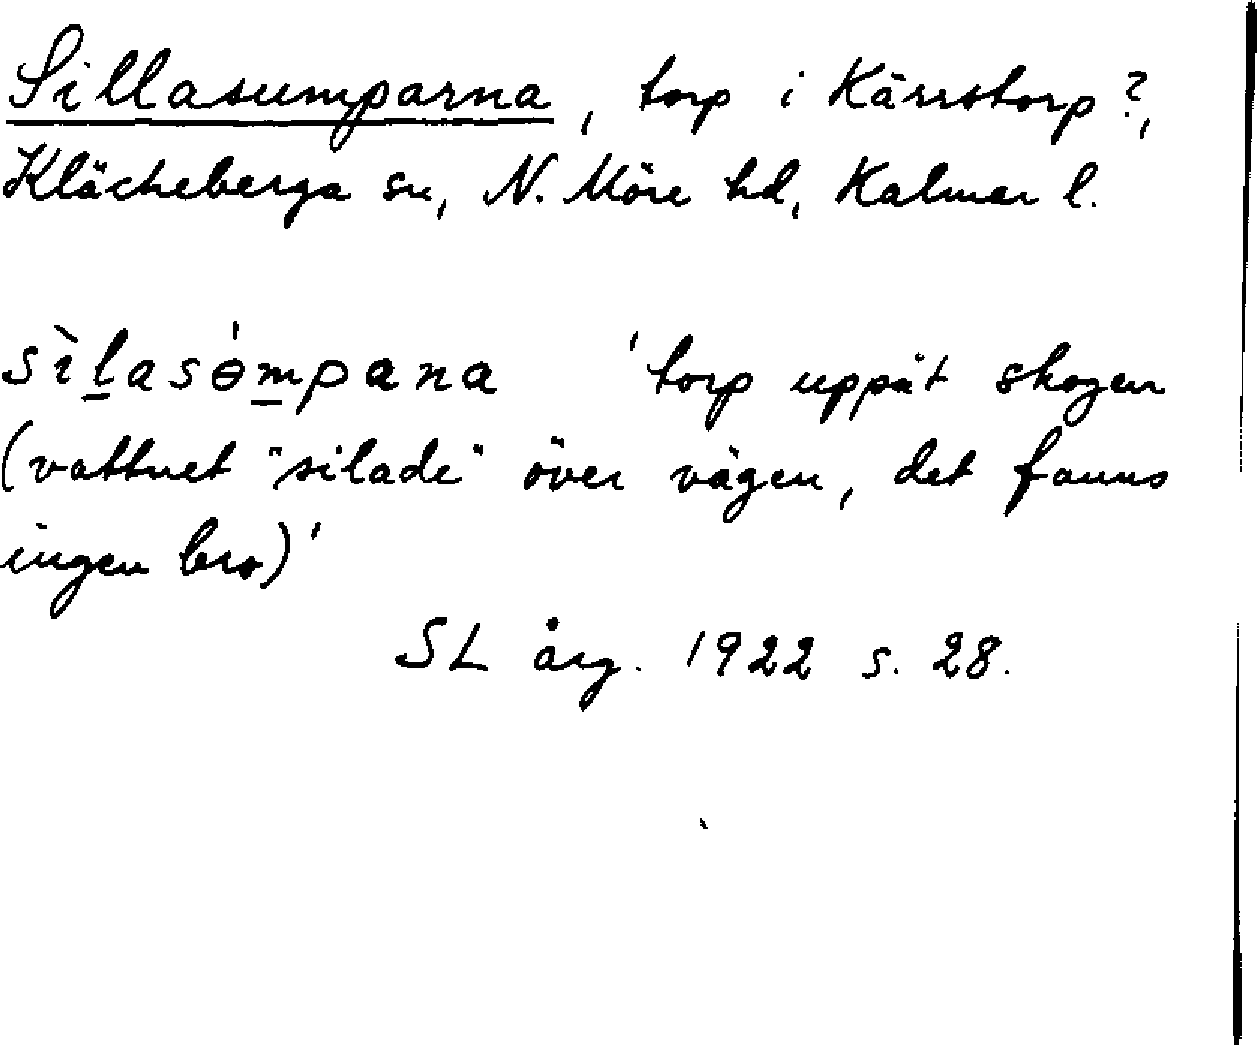 Sillasumparna, torp i Kärrstorp?,
Kläckeberga sn, N. Möre hd, Kalmar l.
sìl̠asɵ́m̠pana 'torp uppåt skogen
(vattnet "silade" över vägen, det fanns
ingen bro)'
SL årg. 1922 s. 28.